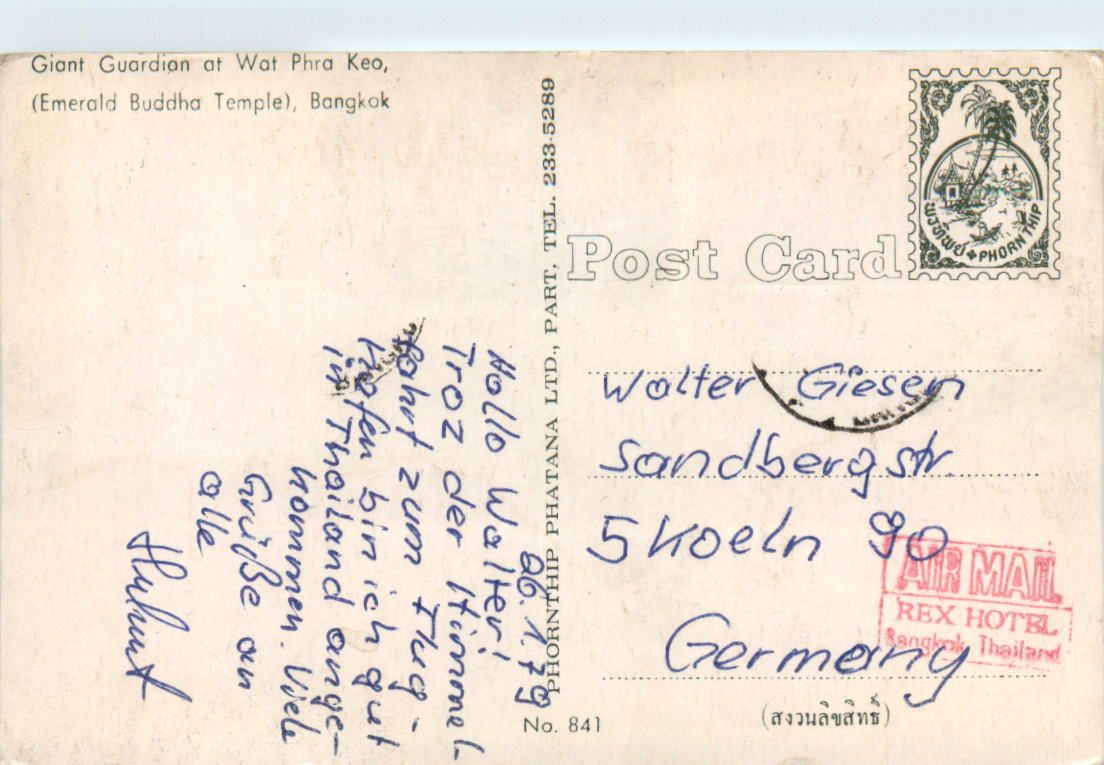 Giant Guardian at Wat Phra Keo,
(Emerald Buddha Temple), Bangkok
PHORNTHIP PHATANA LTD., PART, TEL. 233-5289
Post Card
พรทิพย์ PHORNTHIP
26.1.79
Hallo Walter!
Troz der Himmel-
fahrt zum Flug-
hafen bin ich gut
in Thailand ange-
kommen. Viele
Grüße an
alle
Helmut
Walter Giesen
Sandbergstr.
5 Koeln 90
Germany
AIR MAIL
REX HOTEL
Bangkok Thailand
No. 841
(สงวนลิขสิทธิ์)